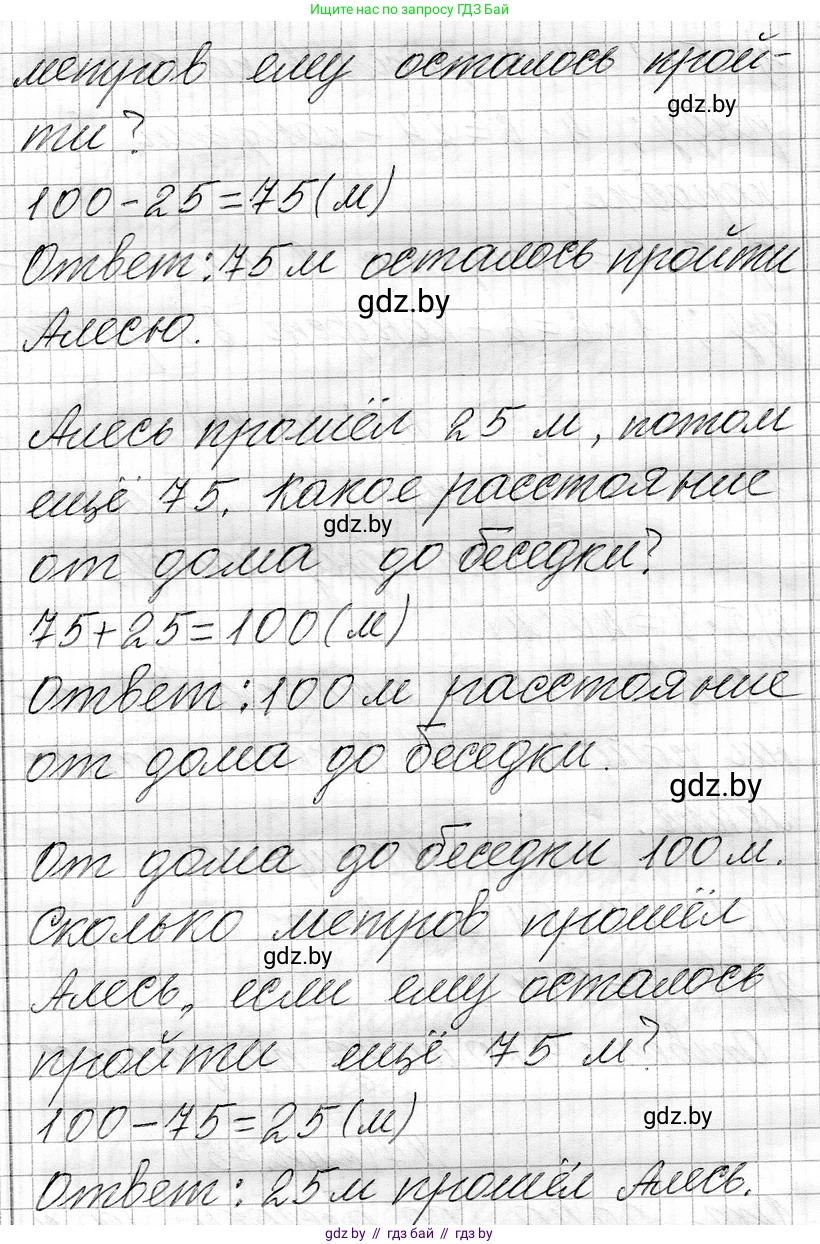 Ищите нас по запросу ГДЗ Бай
метров ему осталось прой-
gdz.by
ти?
100-25=75(м)
Ответ: 75 м осталось пройти
gdz.by
Алесю.
Алесь прошёл 25 м, потом
ещё 75. Какое расстояние
gdz.by
от дома до беседки?
75+25=100(м)
Ответ: 100 м расстояние
от дома до беседки.
gdz.by
От дома до беседки 100 м.
Сколько метров прошёл
gdz.by
Алесь, если ему осталось
пройти ещё 75 м?
100-75=25(м)
gdz.by
Ответ: 25 м прошёл Алесь.
gdz.by // гдз бай // гдз by